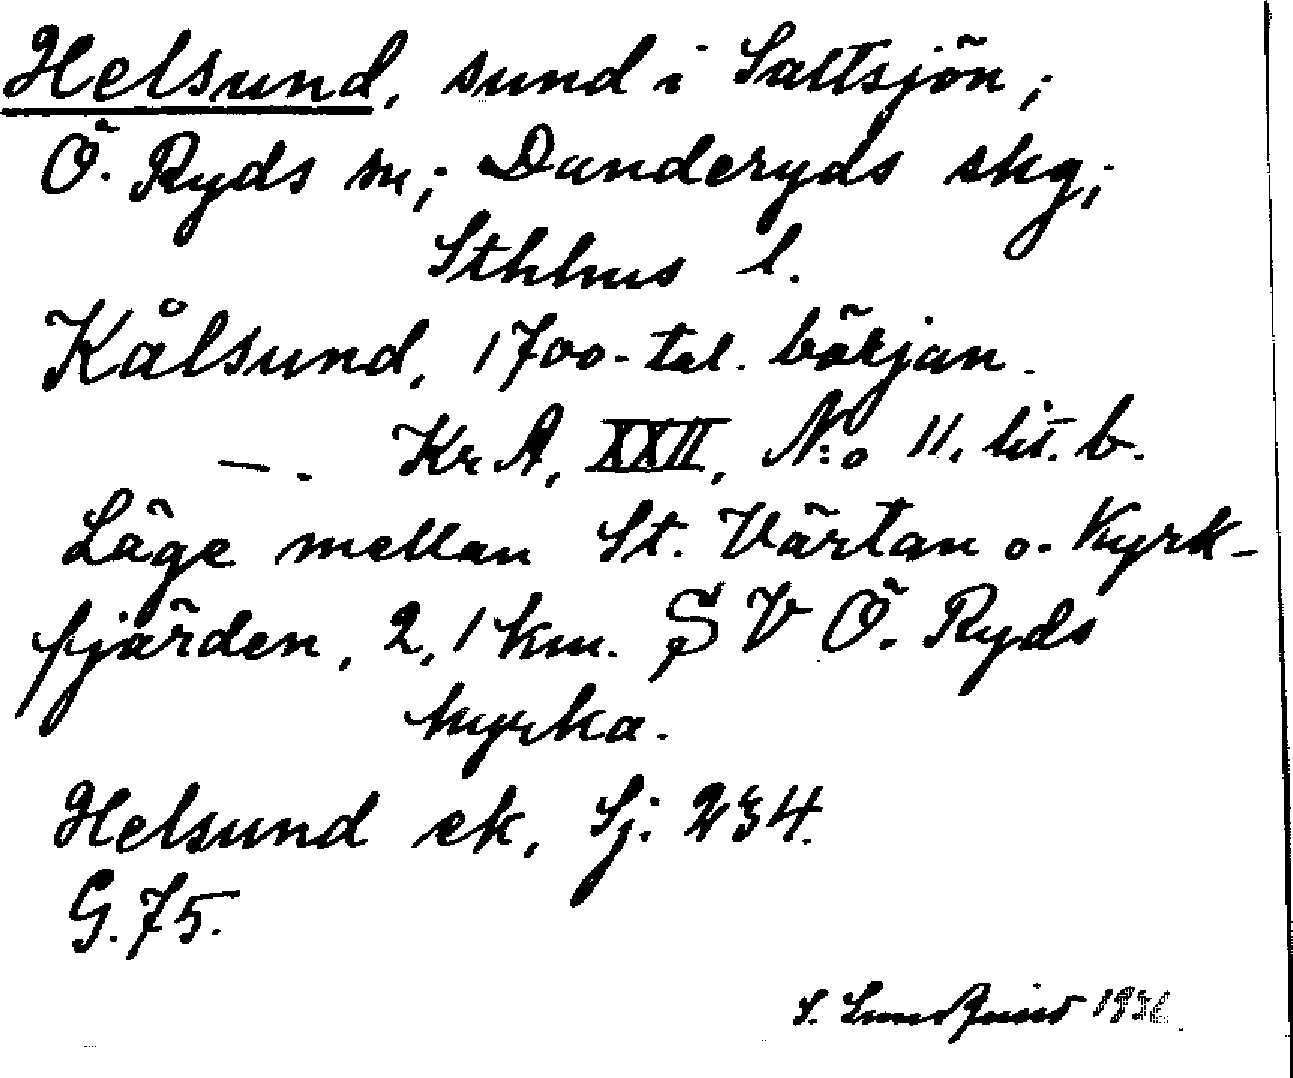 Helsund, sund i Saltsjön;
Ö. Ryds sn; Danderyds skg;
Sthlms l.
Kålsund, 1700-tal. början.
—. Kr A, XXII, N:o 11. lit. b.
Läge mellan St. Värtan o. Kyrk-
fjärden, 2,1 km. SV Ö. Ryds
kyrka.
Helsund ek, Sj: 234.
G. 75.
S.